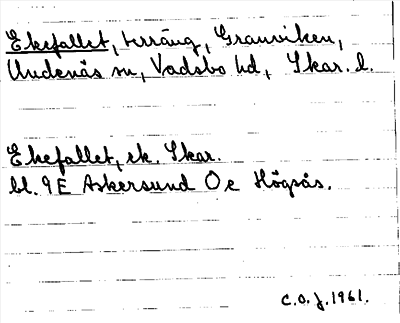 Ekefallet, terräng, Granviken,
Undenäs sn, Vadsbo hd, Skar. l.
Ekefallet, ek. Skar.
bl. 9E Askersund O e Högsås.
C.O.J. 1961.